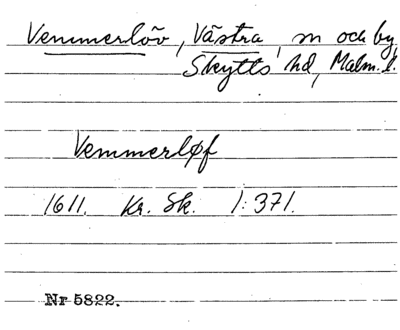 Vemmerlöv, Västra, sn och by,
Skytts hd, Malm. l.
Vemmerløf
1611. Kr. Sk. 1:371.
Nr 5822.